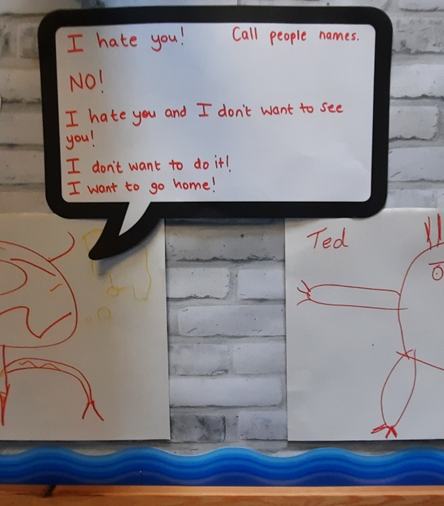 I hate you! Call people names.
NO!
I hate you and I don't want to see
you!
I don't want to do it!
I want to go home!
Ted